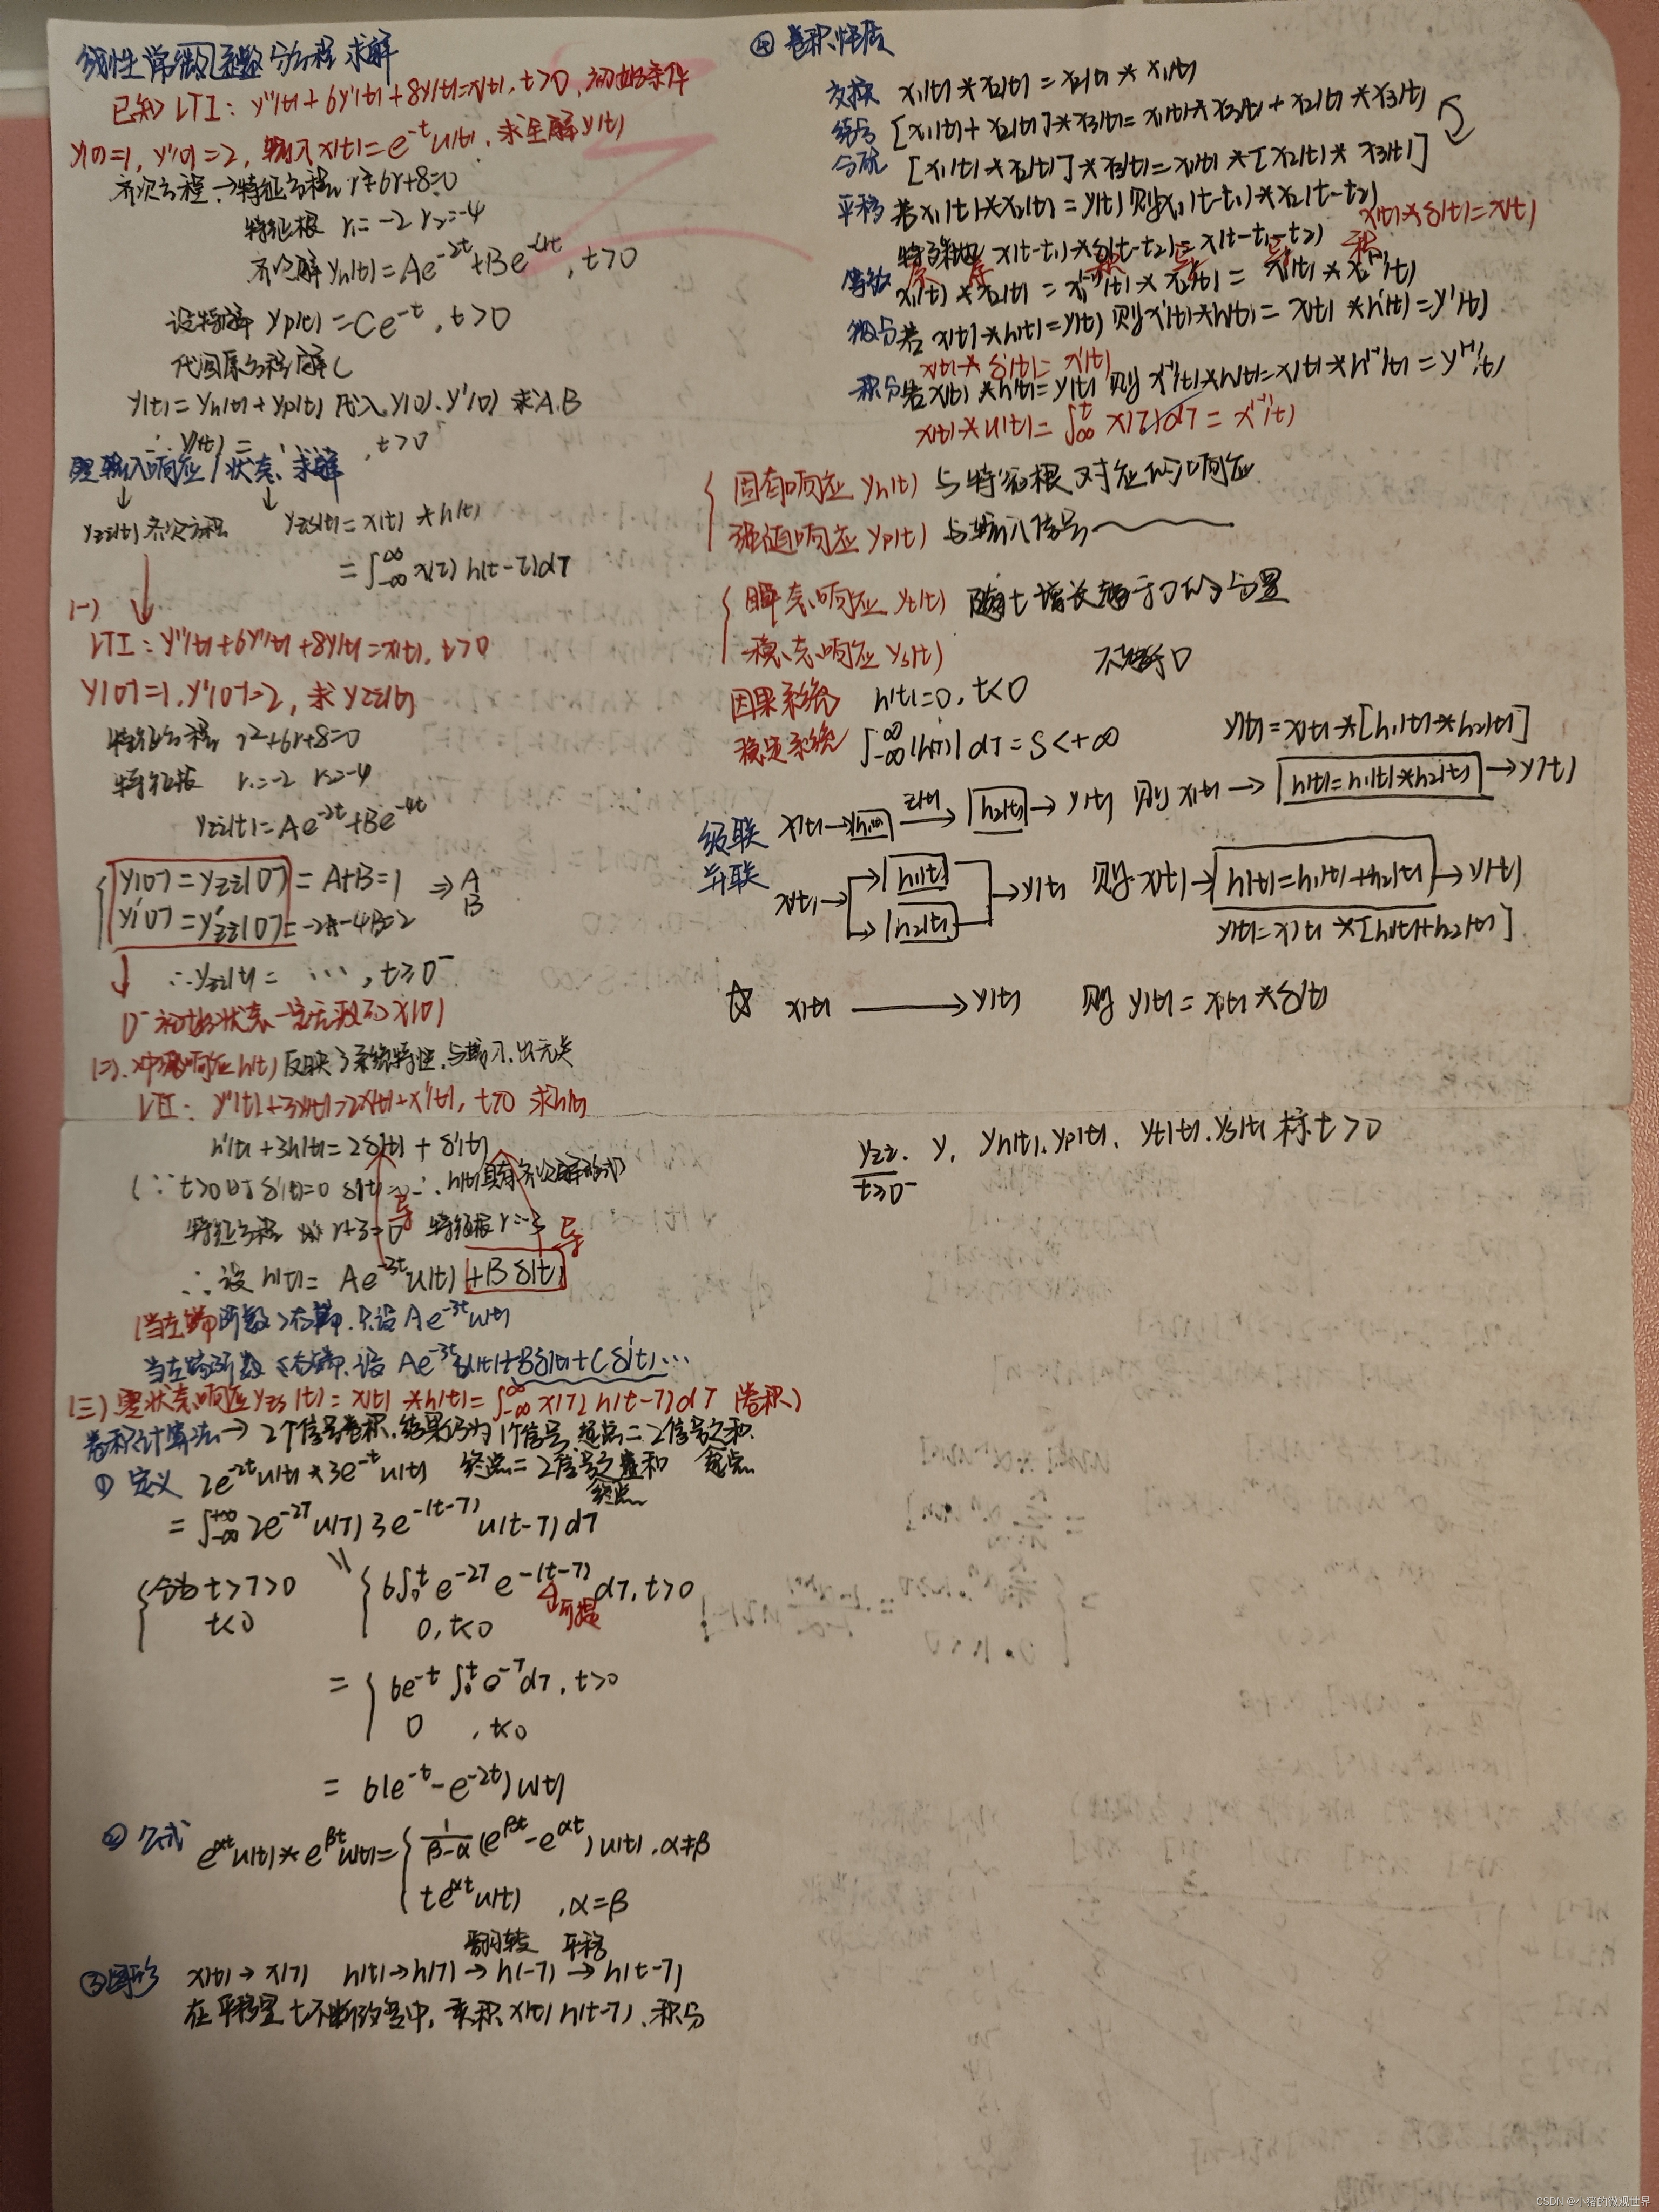 线性常微系数分方程求解
已知LTI: y''(t)+6y'(t)+8y(t)=x(t), t>0, 初始条件
y(0)=1, y'(0)=2, 输入x(t)=e^{-t}u(t), 求全解y(t)
齐次方程→特征方程 r²+6r+8=0
特征根 r₁=-2 r₂=-4
齐次解 yh(t)=Ae^{-2t}+Be^{-4t}, t>0
设特解 yp(t)=Ce^{-t}, t>0
代回原方程解C
y(t)=yh(t)+yp(t) 代入y(0).y'(0) 求A.B
∴y(t)= , t>0
零输入响应/状态 求解
yzi(t) 齐次方程 yzs(t)=x(t)*h(t)
=∫_{-∞}^{∞} x(τ) h(t-τ)dτ
(一)
LTI: y''(t)+6y'(t)+8y(t)=x(t), t>0
y(0⁻)=1, y'(0⁻)=2, 求yzi(t)
特征方程 r²+6r+8=0
特征根 r₁=-2 r₂=-4
yzi(t)=Ae^{-2t}+Be^{-4t}
y(0⁻)=yzi(0⁻)=A+B=1 ⇒ A
y'(0⁻)=y'zi(0⁻)=-2A-4B=2 B
∴yzi(t)= ⋯, t≥0⁻
0⁻初始状态一定无激励x(0)
(二). 冲激响应h(t) 反映了系统特性,与输入.出无关
LTI: y'(t)+3y(t)=2x(t)+x'(t), t>0 求h(t)
h'(t)+3h(t)=2δ(t)+δ'(t)
(∵t>0时δ'(t)=0 δ(t)=0∴h(t)具有齐次解形式)
特征方程 r+3=0 特征根r=-3
导 导
∴设 h(t)= Ae^{-3t}u(t)+Bδ(t)
(当左端阶数>右端,只设Ae^{-3t}u(t)
当左端阶数≤右端,设 Ae^{-3t}u(t)+Bδ(t)+Cδ'(t)⋯
(三)零状态响应yzs(t)=x(t)*h(t)=∫_{-∞}^{∞}x(τ)h(t-τ)dτ (卷积)
卷积计算法→2个信号卷积,结果仍为1个信号 起点=2信号之和
① 定义 2e^{-2t}u(t)*3e^{-t}u(t) 终点=2信号之和 起点
终点
=∫_{-∞}^{+∞}2e^{-2τ}u(τ)3e^{-(t-τ)}u(t-τ)dτ
t>τ>0 6∫₀^t e^{-2τ}e^{-(t-τ)}dτ, t>0
t<0 0, t<0 可提
= 6e^{-t}∫₀^t e^{-τ}dτ, t>0
0 , t<0
= 6(e^{-t}-e^{-2t})u(t)
② 公式 e^{αt}u(t)*e^{βt}u(t)= 1/(β-α) (e^{βt}-e^{αt})u(t), α≠β
te^{αt}u(t) , α=β
翻转 平移
③图形 x(t)→x(τ) h(t)→h(τ)→h(-τ)→h(t-τ)
在平移量t不断改变中,乘积x(τ)h(t-τ),积分
④ 卷积性质
交换 x₁(t)*x₂(t)=x₂(t)*x₁(t)
结合 [x₁(t)+x₂(t)]*x₃(t)=x₁(t)*x₃(t)+x₂(t)*x₃(t)
分配 [x₁(t)*x₂(t)]*x₃(t)=x₁(t)*[x₂(t)*x₃(t)]
平移 若x₁(t)*x₂(t)=y(t) 则x₁(t-t₁)*x₂(t-t₂)
x(t)*δ(t)=x(t)
特殊地 x(t-t₁)*δ(t-t₂)=x(t-t₁-t₂)
积 导 导 积
等效 x₁(t)*x₂(t)=x₁^{(-1)}(t)*x₂'(t)=x₁'(t)*x₂^{(-1)}(t)
微分 若 x(t)*h(t)=y(t) 则x'(t)*h(t)=x(t)*h'(t)=y'(t)
x(t)*δ'(t)=x'(t)
积分 若x(t)*h(t)=y(t) 则x^{(-1)}(t)*h(t)=x(t)*h^{(-1)}(t)=y^{(-1)}(t)
x(t)*u(t)=∫_{-∞}^{t}x(τ)dτ=x^{(-1)}(t)
固有响应 yh(t) 与特征根对应的响应
强迫响应 yp(t) 与输入信号
瞬态响应 yt(t) 随t增长趋于0的分量
稳态响应 ys(t) 不趋于0
因果系统 h(t)=0, t<0
稳定系统 ∫_{-∞}^{∞}|h(τ)|dτ=S<+∞
y(t)=x(t)*[h₁(t)*h₂(t)]
级联 x(t)→h₁(t) z(t)→ h₂(t) →y(t) 则 x(t)→ h(t)=h₁(t)*h₂(t) →y(t)
并联 x(t)→ h₁(t) h₂(t) →y(t) 则x(t)→ h(t)=h₁(t)+h₂(t) →y(t)
y(t)=x(t)*[h₁(t)+h₂(t)]
☆ x(t) → y(t) 则 y(t)=x(t)*δ(t)
yzi. y, yh(t).yp(t), yt(t).ys(t) 标t>0
t≥0⁻
CSDN @小猪的微观世界